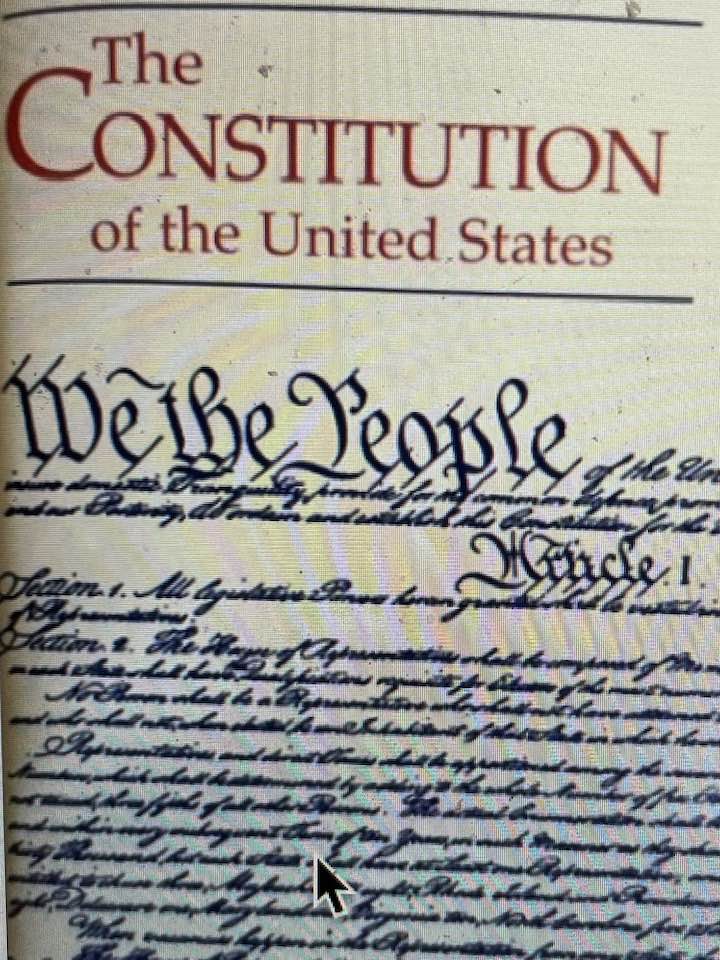 The
CONSTITUTION
of the United States
We the People of the Un
insure domestic Tranquility, provide for the common defence, prom
and our Posterity, do ordain and establish this Constitution for the
Article. I.
Section. 1. All legislative Powers herein granted shall be vested in
of Representatives.
Section. 2. The House of Representatives shall be composed of Mem
in each State shall have Qualifications requisite for Electors of the most numer
No Person shall be a Representative who shall not have attained
and who shall not, when elected, be an Inhabitant of that State in which he
Representatives and direct Taxes shall be apportioned among the
Numbers, which shall be determined by adding to the whole Number of free
three fifths of all other Persons. The actual Enumeration shall
and within every subsequent Term of ten Years, in such Manner as they
thirty Thousand, but each State shall have at least one Representative;
entitled to chuse three,
eight, Delaware one, Maryland Virginia ten, North Carolina five,
When vacancies happen in the Representation from any